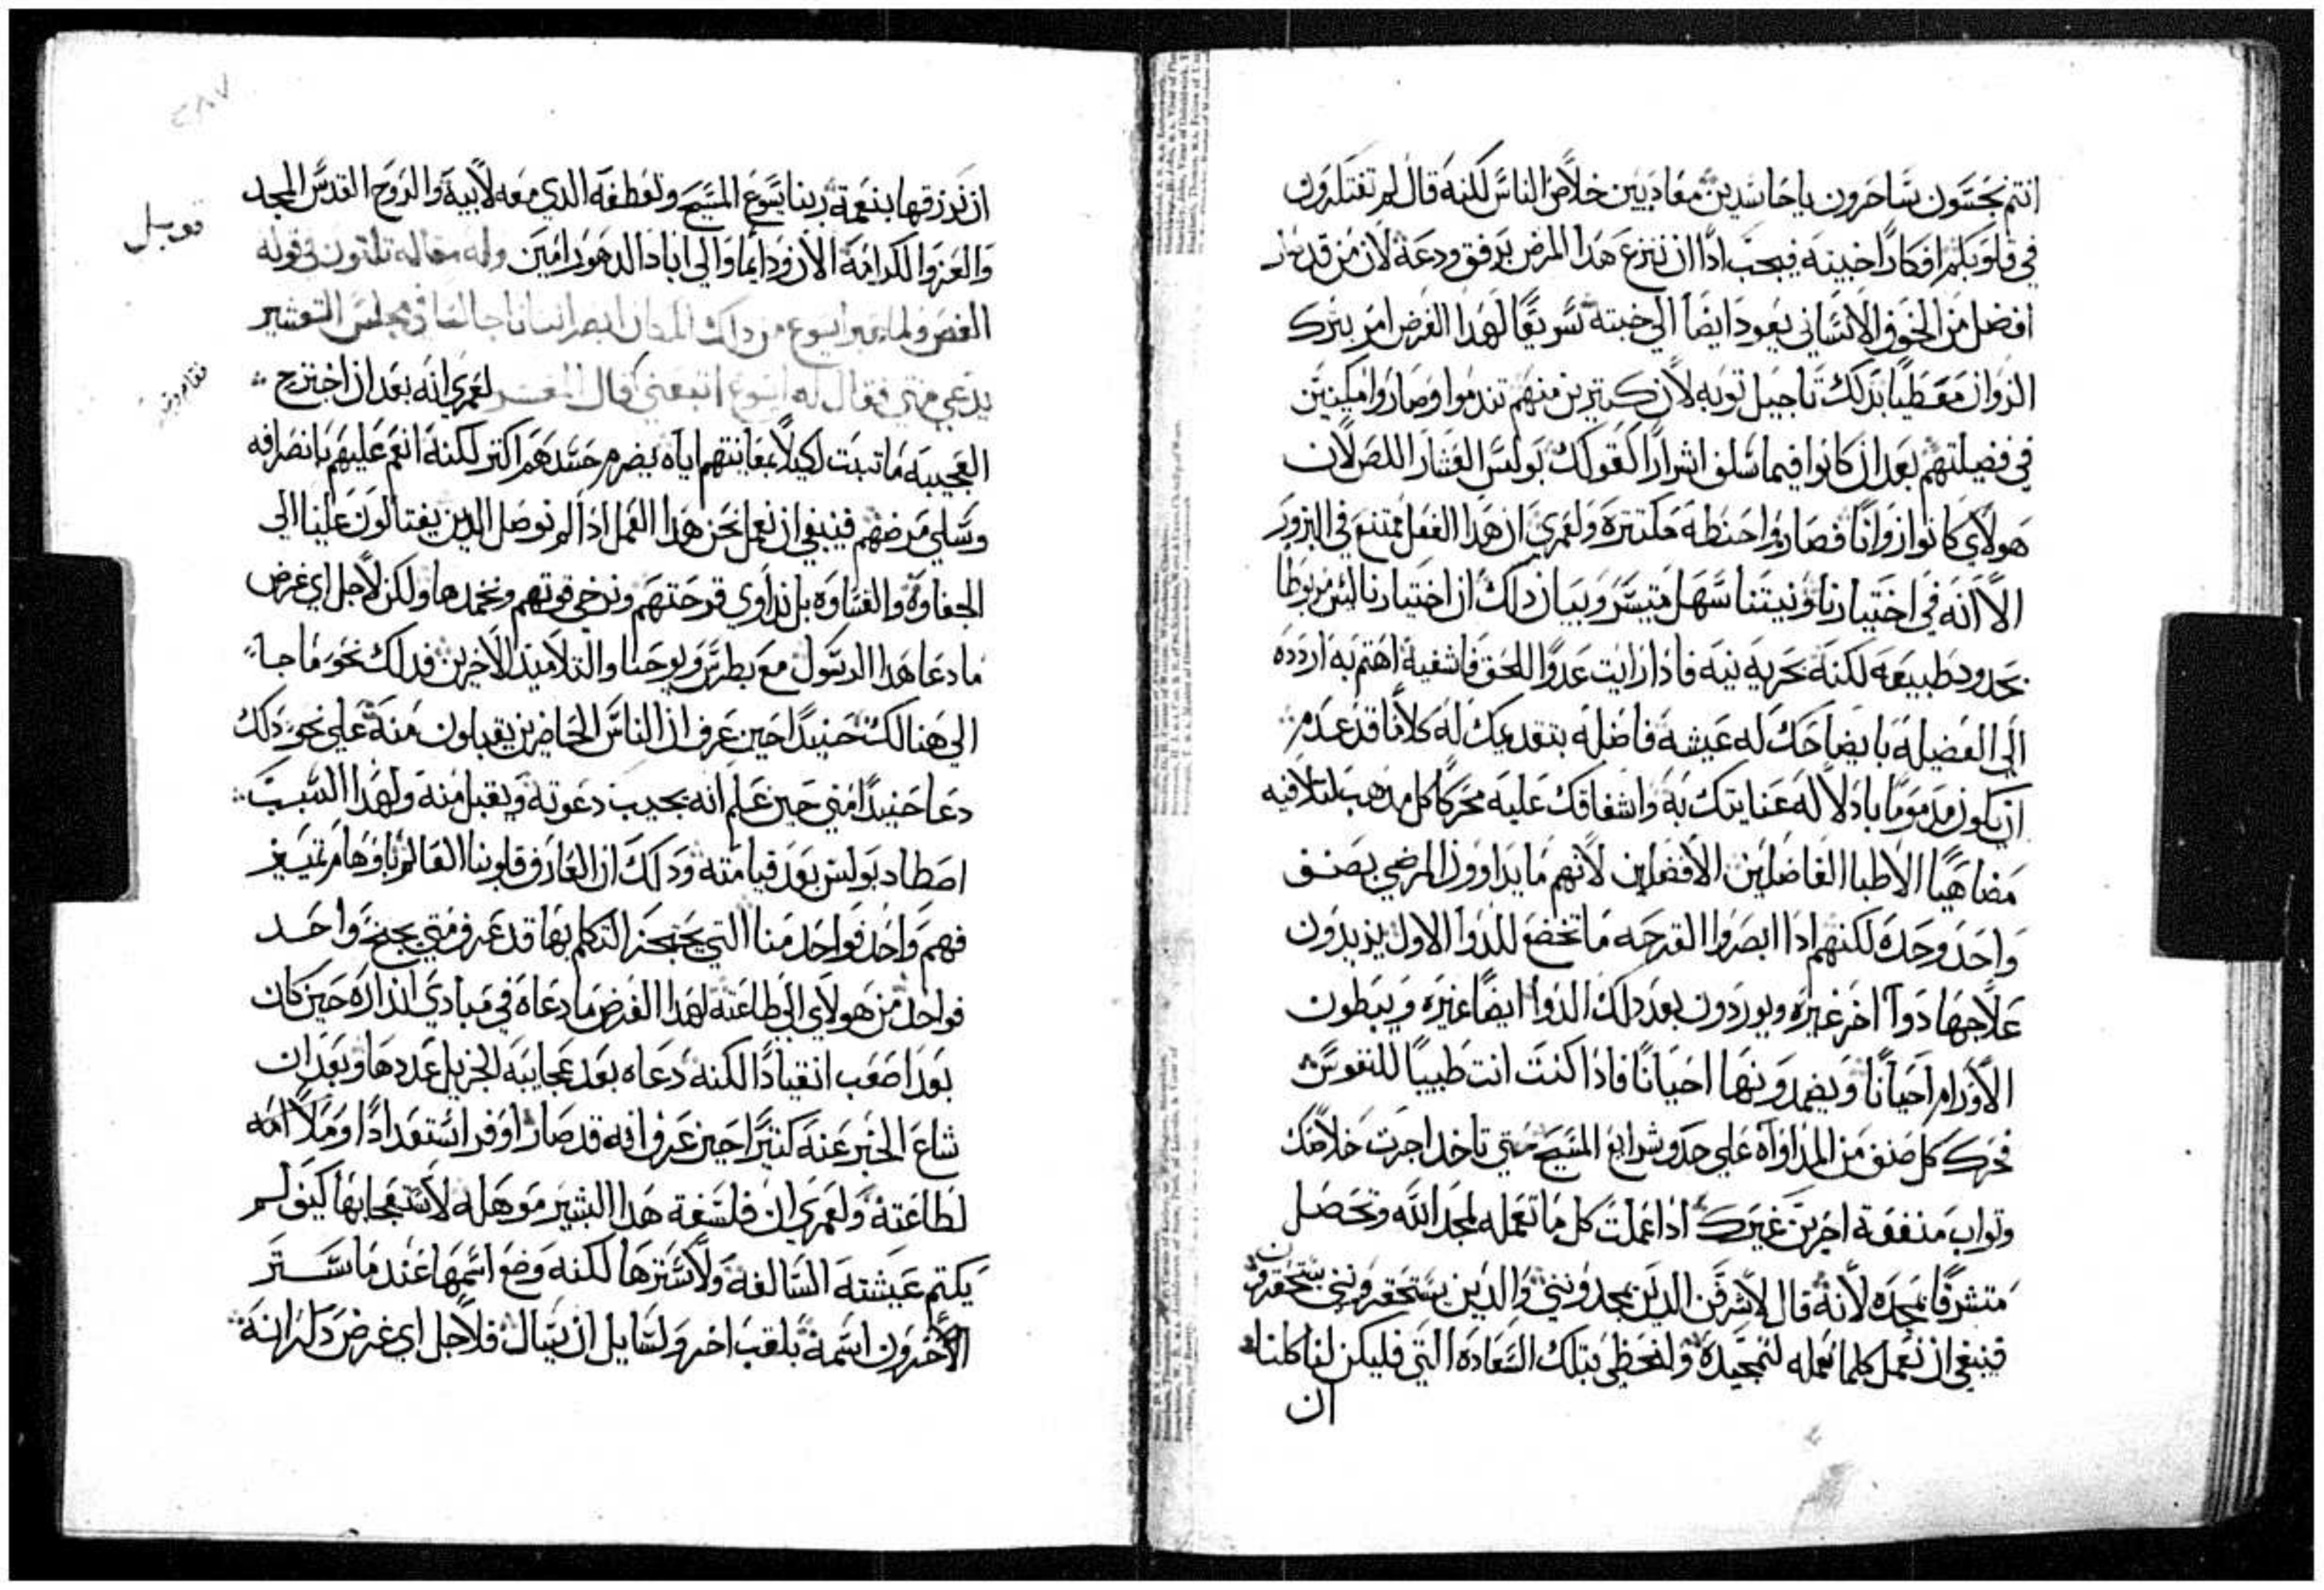 انتم نجسون ساحرون يا حاسدين معاديين خلاص الناس لكنه قال لم تفتكرون
في قلوبكم افكارًا خبيثه فيجب اذًا ان ننزع هذا المرض برفق ودعة لان من قد صار
افضل من الخوف الانساني يعود ايضًا الي خبثه سريعًا لهدا الغرض امر بترك
الزوان معطيًا بذلك تاجيل توبه لان كتيرين منهم تندموا وصاروا مكينين
في فضيلتهم بعد ان كانوا فيما سلف اشرارًا كقولك بولس العشار اللص لان
هولاي كانوا زوانًا فصاروا حنطة مكتتره ولعمري ان هذا الفعل ممتنع في البزور
الا انه في اختيارنا ونيتنا سهل متيسر وبيان ذلك ان اختيارنا ليس مربوطًا
بحدود طبيعه لكنه بحريه نيه فاذا رايت عدوًا للحق فاشفيه اهتم به اردده
الي الفضيله بايضاحك له عيشه فاضله بتقديمك له كلامًا قد عدم
ان يكون مدمومًا باذلًا له عنايتك به واشفاقك عليه محركًا كل مدهب لتلافيه
مضاهيًا الاطبا الفاضلين الافضلين لانهم ما يداوون المرضي بصنف
واحد وحده لكنهم اذا ابصروا القرحه ما تخضع للدوا الاول يزيدون
علاجها دوآ اخر غيره ويوردون بعد دلك الدوا ايضًا غيره ويبطون
الاورام احيانًا ويضمدونها احيانًا فاذا كنت انت طبيبًا للنفوس
فحرك كل صنف من المداواه علي حدو شرايع المسيح متي تاخد اجرت خلاصك
وتواب منفعة اجرين غيرك اذا عملت كل ما تعمله لمجد الله وتحصل
متشرفًا بمجده لانه قال لاشرفن الدين يمجدونني والدين يستحقرونني يستحقرون
فينبغي ان نعمل كلما نعمله لتمجيده ولنحظي بتلك السعاده التي فليكن لنا كلنا
ان
٤٨٧
ان نرزقها بنعمة ربنا يسوع المسيح وتعطفه الدي معه لابيه والروح القدس المجد
والعز والكرامه الان ودايمًا والي اباد الدهور امين وله مقاله تلتون في قوله
قوبل
الفص ولما عبر ايسوع من داك المكان ابصر انسانا جالسًا في مجلس التعشير
يدعي متي فقال له ايسوع اتبعني قال المفسر لعمري انه بعد ان اخترج
العجيبه ما تبت لكيلا بمعاينتهم اياه يضرم حسدهم اكتر لكنه انعم عليهم بانصرافه
وسلي مرضهم فينبغي ان نعمل نحن هذا العمل اذا لم نوصل الدين يغتالون علينا الي
الجفاوة والقساوه بل نداوي قرحتهم ونرخي قوتهم ونخمدها ولكن لاجل اي غرض
ما دعا هدا الرسول مع بطرس ويوحنا والتلاميد الاخرين فداك نحو ما جا
الي هنالك حنيدًا حين عرف ان الناس الحاضرين يقبلون منه علي نحو دلك
دعا حنيدًا متي حين علم انه يجيب دعوته ويقبل منه ولهدا السبب
اصطاد بولس بعد قيامته ودلك ان العارف قلوبنا العالم باوهام تمييز
فهم واحد فواحد منا التي يحتجز التكلم بها قد عرف متي يجنح واحد
فواحد من هولاي الي طاعته لهدا الغرض ما دعاه في مبادي انداره حين كان
بعد اصعب انقيادًا لكنه دعاه بعد عجايبه الجزيل عددها وبعد ان
شاع الخبر عنه كتيرًا حين عرف انه قد صار اوفر استعدادًا وملاامه
لطاعته ولعمري ان فلسفة هدا البشير موهله لاستعجابها كيف لم
يكتم عيشته السالفه ولا سترها لكنه وضع اسمها عند ما ستر
الاخرون اسمه بلقب اخر ولسايل ان يسال فلاجل اي غرض دكر انه